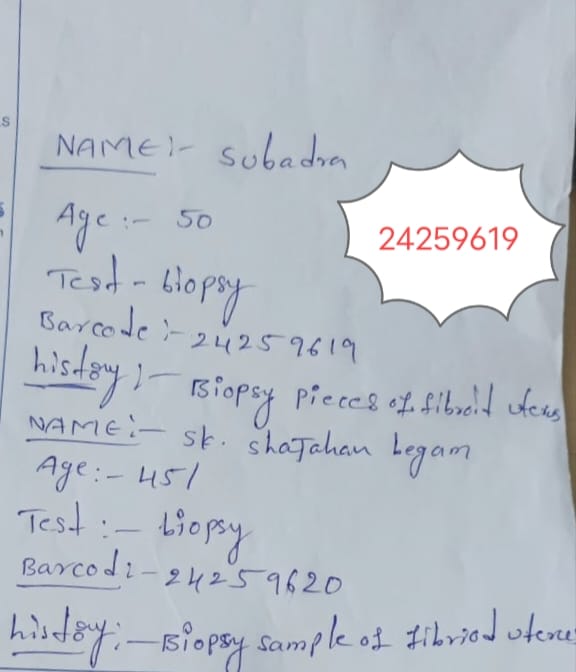 NAME:- Subadra
24259619
Age:- 50
Test - biopsy
Barcode:- 24259619
history:- Biopsy pieces of fibroid uterus
NAME:- sk. shaJahan begam
Age:- 45/
Test:- biopsy
Barcod:- 24259620
history:- Biopsy sample of fibriod uterus